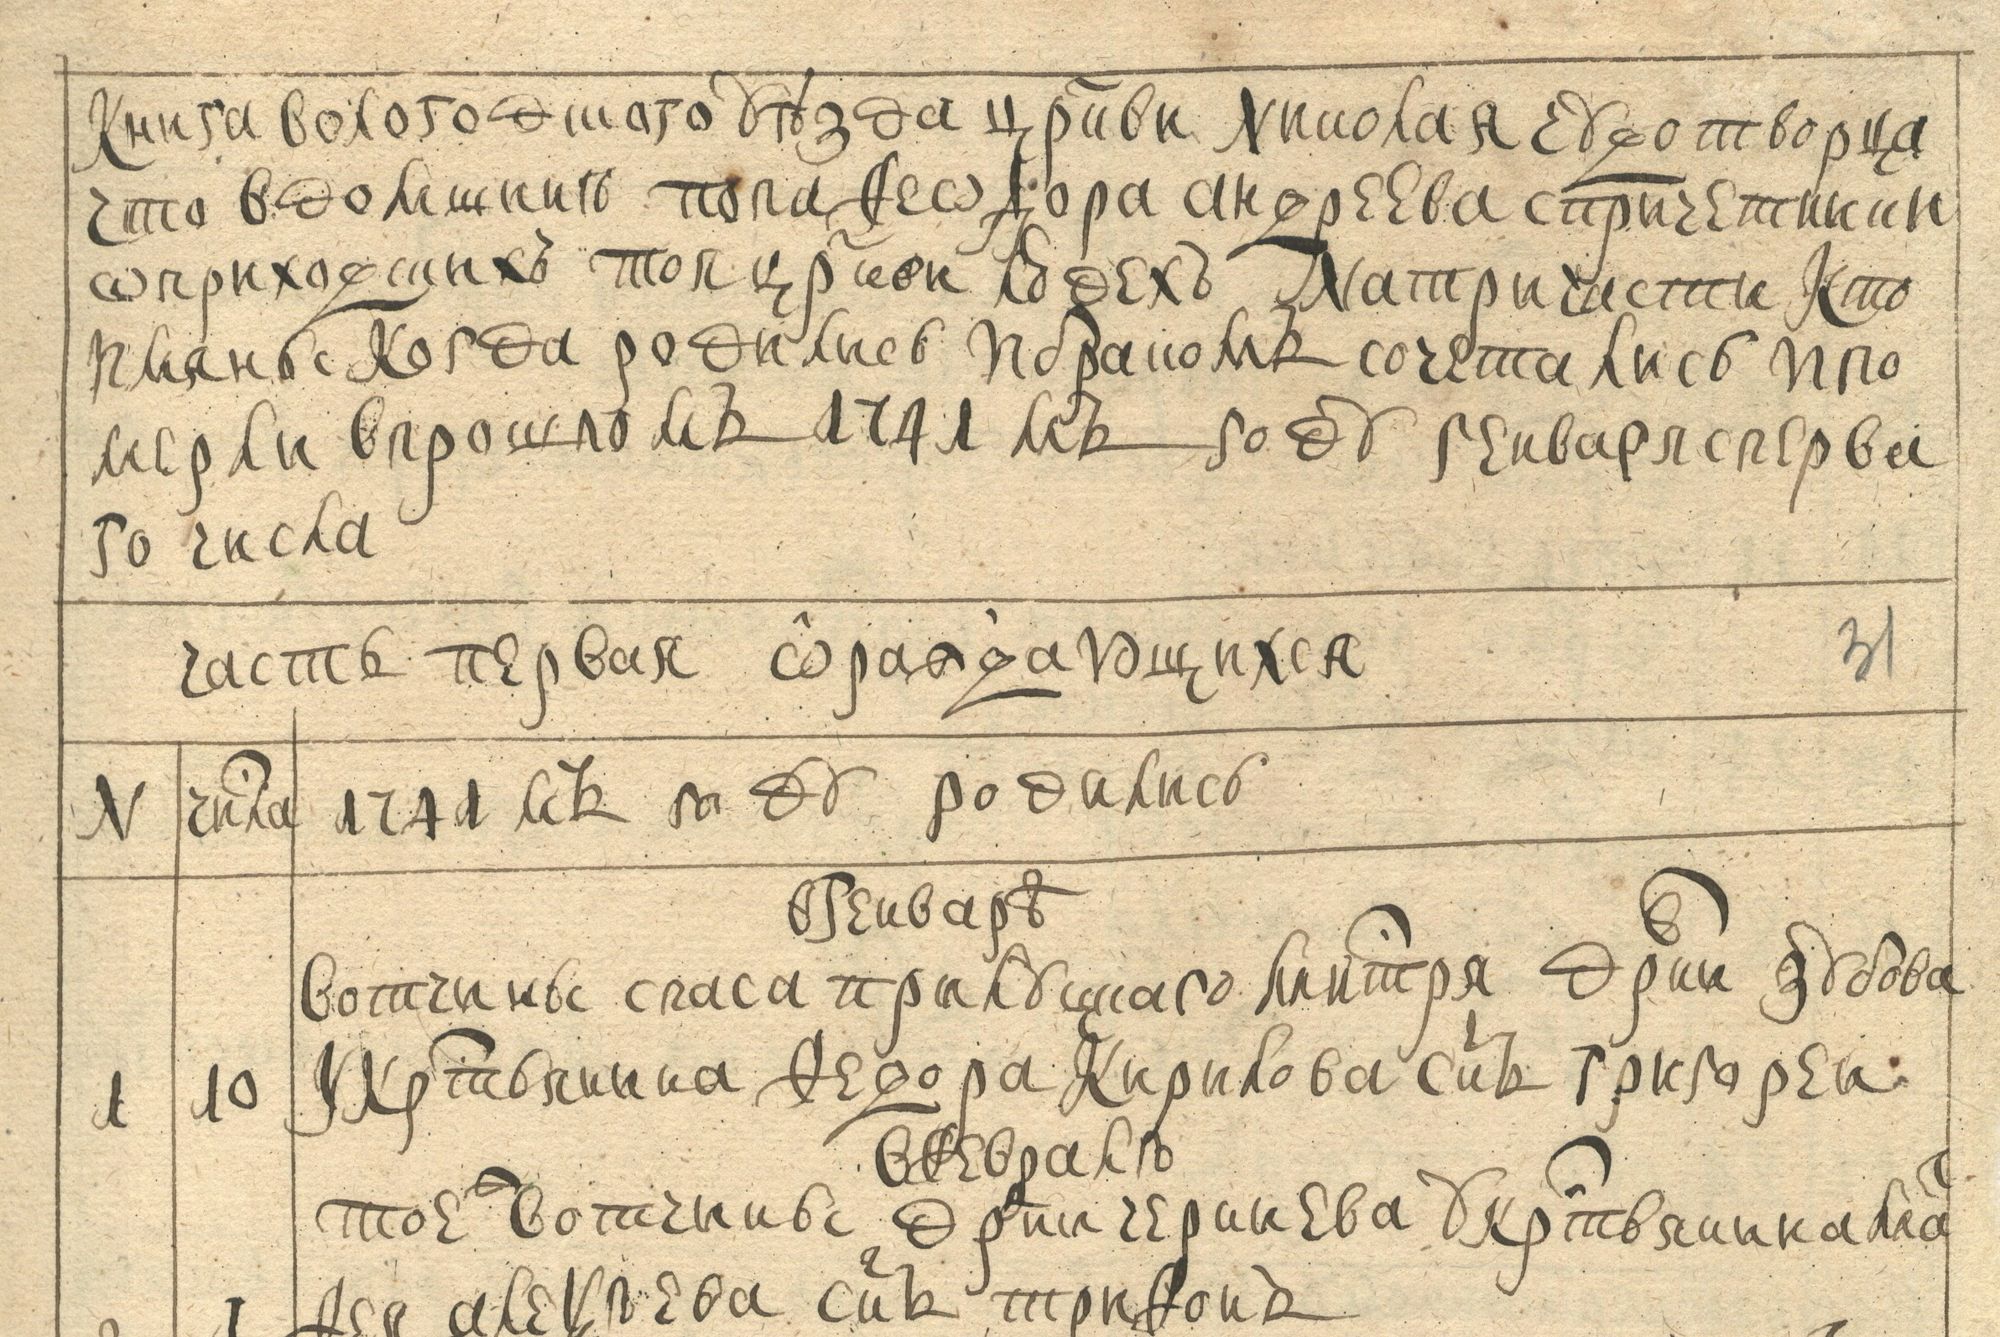 Книга вологодского уѣзда цркви Николая чудотворца
что вдомшинѣ попа Феѡдора андреева спричетники
ѡприходскихъ тоя цркви людехъ Натри части Кто
имяны Когда родились и бракомъ сочетались и по
мерли впрошломъ 1741 мъ году генваря сперва
го числа
часть первая ѡ раждающихся 31
N числа 1741 мъ году родились
вгенварѣ
вотчины спаса прилуцкаго мнтря дрвни зубова
1 10 У Крстьянина Федора Кирилова снъ григореи
вфевралѣ
тоеж вотчины дрвни чернеева у крстьянина мат
фея алексѣева снъ трифонъ